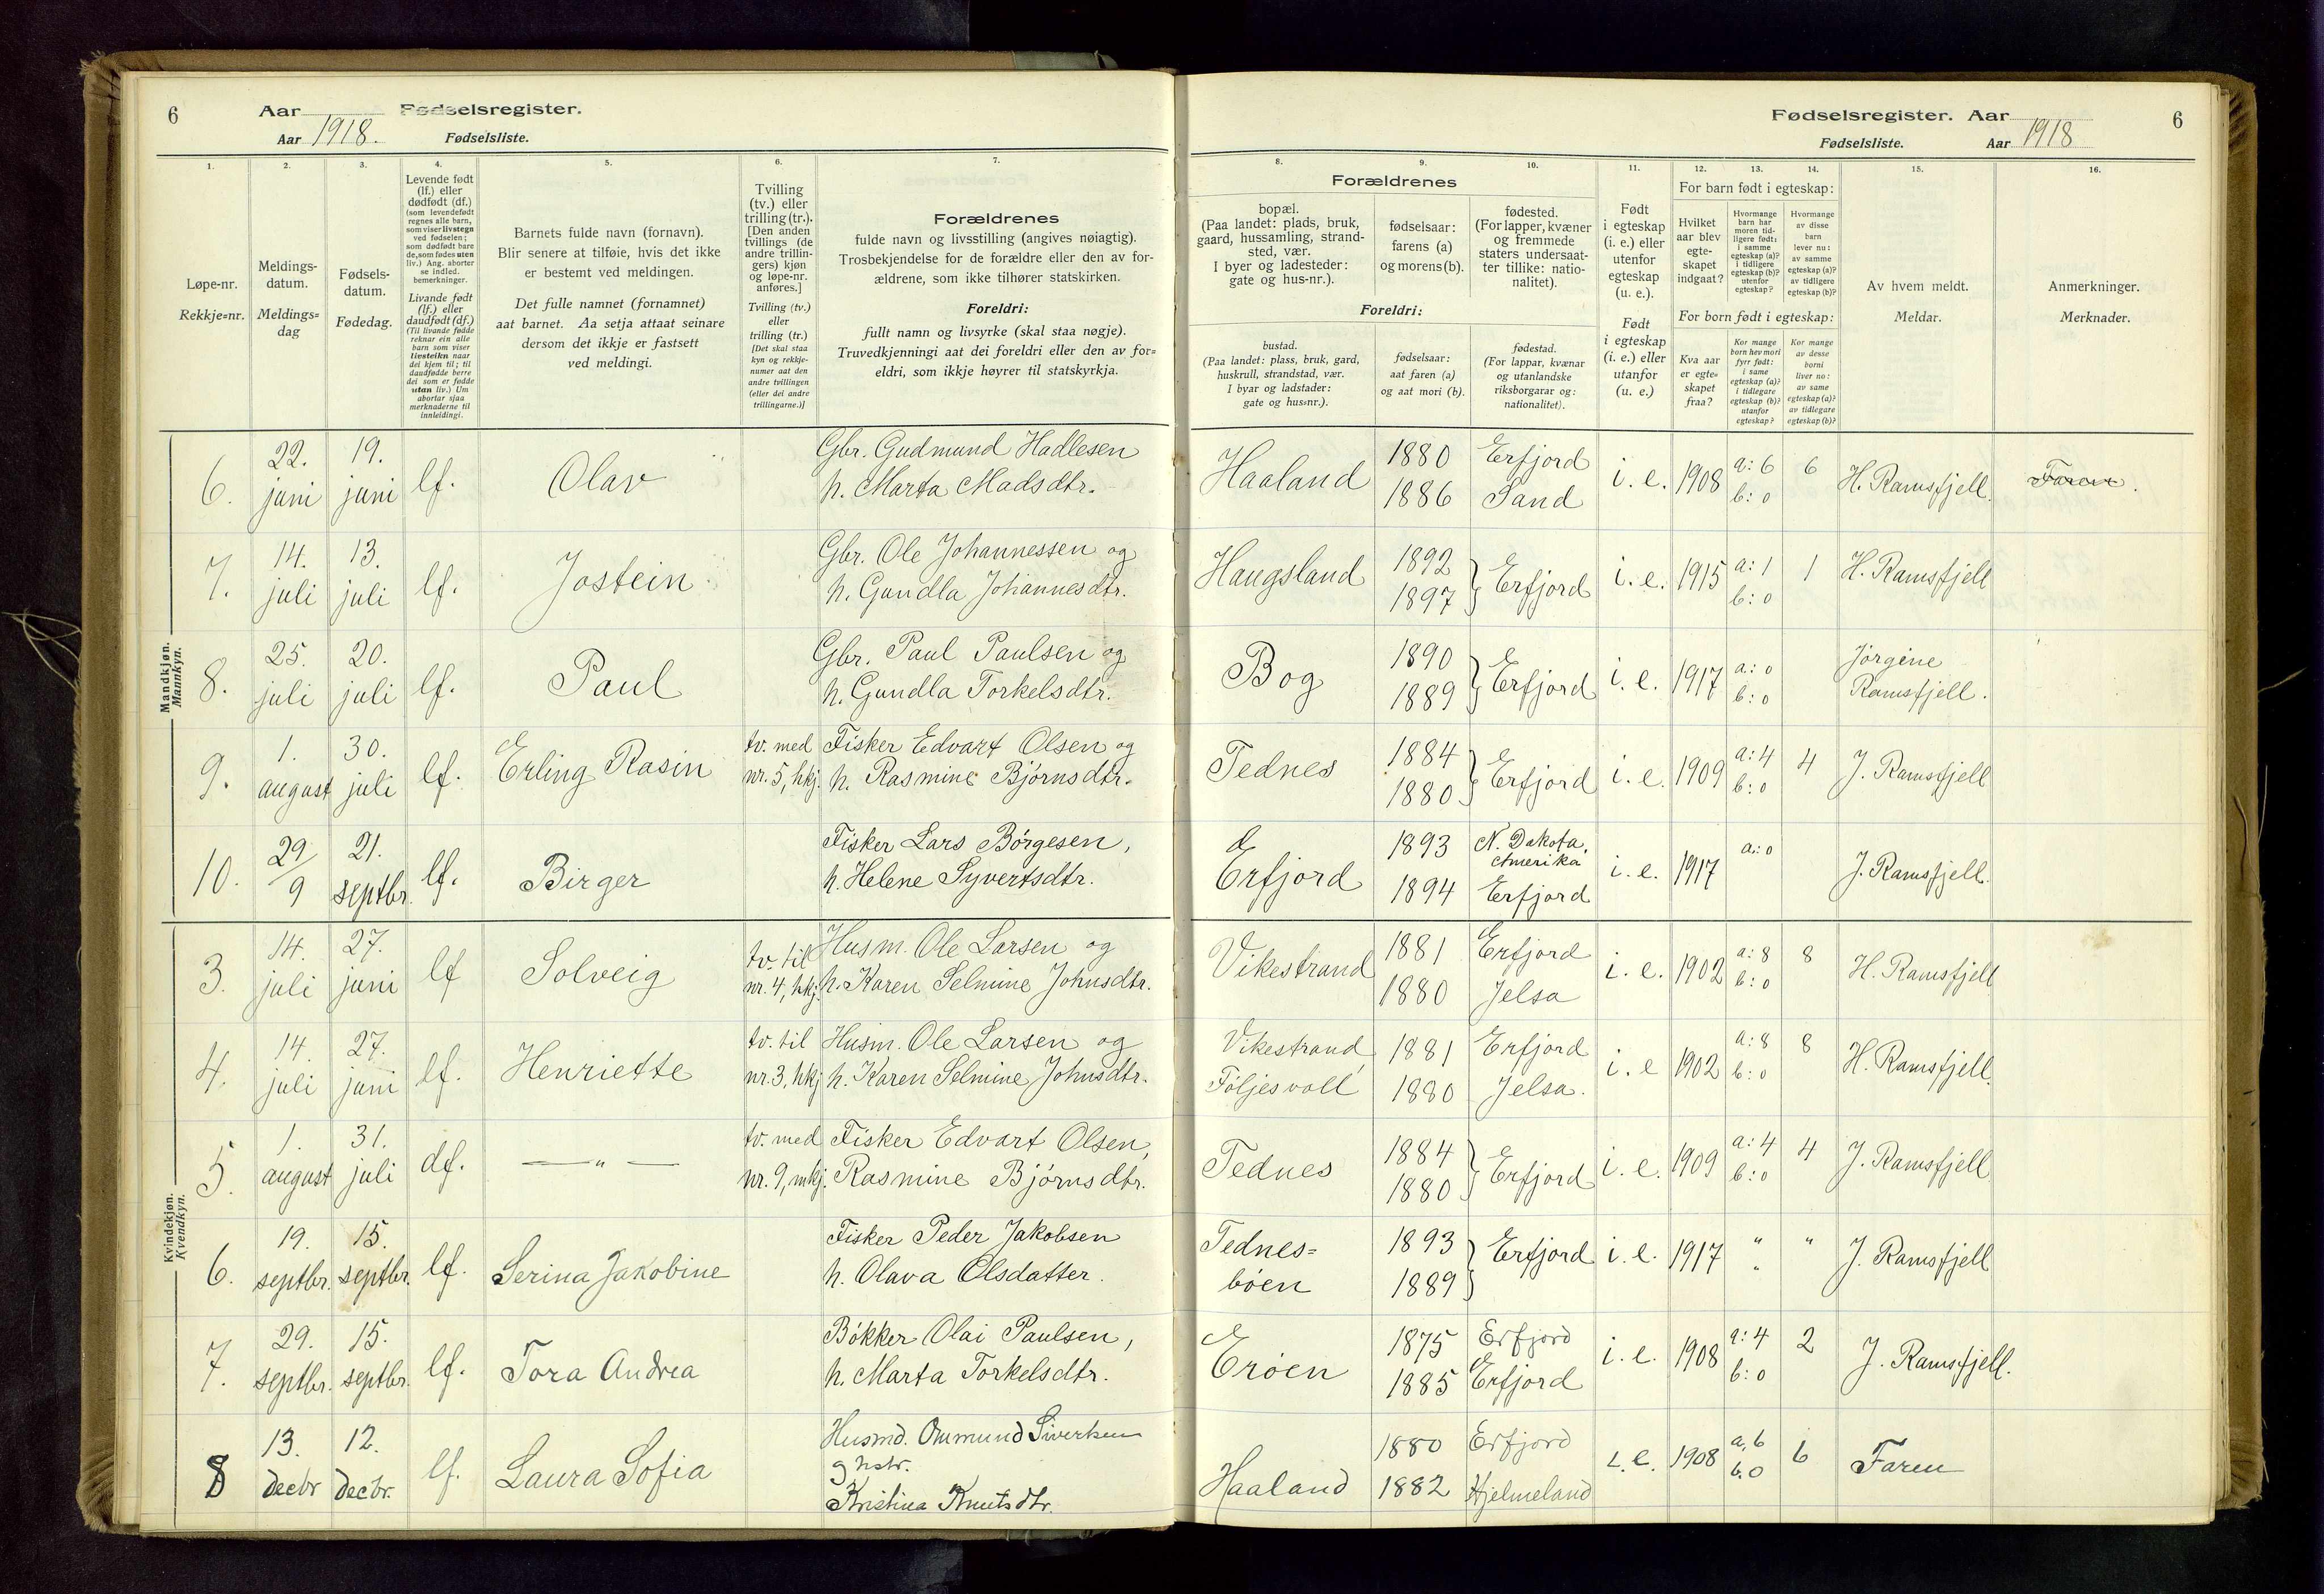 6
Aar
Fødselsregister.
Aar 1918.
Fødselsliste.
1.
2.
3.
4.
5.
6.
7.
Løpe-nr.
Rekkje=nr.
Meldings-
datum.
Meldings=
dag
Fødsels-
datum.
Fødedag.
Levende født
(lf.) eller
dødfødt (df.)
(som levendefødt
regnes alle barn,
som viser livstegn
ved fødselen;
som dødfødt bare
de, som fødes uten
liv.) Ang. aborter
se indled.
bemerkninger.
Livande født
(lf.) eller
daudfødt (df.)
(Til livande fødde
reknar ein alle
barn som viser
livsteikn naar
dei kjem til; til
daudfødde berre
dei som er fødde
utan liv.) Um
abortar sjaa
merknaderne til
innleidingi.
Barnets fulde navn (fornavn).
Blir senere at tilføie, hvis det ikke
er bestemt ved meldingen.
Det fulle namnet (fornamnet)
aat barnet. Aa setja attaat seinare
dersom det ikkje er fastsett
ved meldingi.
Tvilling
(tv.) eller
trilling (tr.).
[Den anden
tvillings (de
andre trillin-
gers) kjøn
og løpe-nr.
anføres.]
Tvilling (tv.)
eller
trilling (tr.)
[Det skal staa
kyn og rekkje-
numer aat den
andre tvillingen
(eller dei andre
trillingarne.)]
Forældrenes
fulde navn og livsstilling (angives nøiagtig).
Trosbekjendelse for de forældre eller den av for-
ældrene, som ikke tilhører statskirken.
Foreldri:
fullt namn og livsyrke (skal staa nøgje).
Truvedkjenningi aat dei foreldri eller den av for=
eldri, som ikkje høyrer til statskyrkja.
Mandkjøn.
Mannkyn.
6.
22.
juni
19.
juni
lf.
Olav
Gbr. Gudmund Hadlesen
h. Marta Madsdtr.
7.
14.
juli
13.
juli
lf.
Jostein
Gbr. Ole Johannessen og
h. Gundla Johannesdtr.
8.
25.
juli
20.
juli
lf.
Paul
Gbr. Paul Paulsen og
h. Gundla Torkelsdtr.
9.
1.
august
30.
juli
lf.
Erling Rasin
tv. med
nr. 5, hkj.
Fisker Edvart Olsen og
h. Rasmine Bjørnsdtr.
10.
29/
9
21.
septbr.
lf.
Birger
Fisker Lars Børgesen,
h. Helene Syvertsdtr.
Kvindekjøn.
Kvendkyn.
3.
14.
juli
27.
juni
lf
Solveig
tv. til
nr. 4, hkj.
Husm. Ole Larsen og
h. Karen Selmine Johnsdtr.
4.
14.
juli
27.
juni
lf.
Henriette
tv. til
nr. 3, hkj
Husm. Ole Larsen og
h. Karen Selmine Johnsdtr.
5.
1.
august
31.
juli
df.
— " —
tv. med
nr. 9, mkj.
Fisker Edvart Olsen,
Rasmine Bjørnsdtr.
6.
19.
septbr.
15.
septbr.
lf.
Serina Jakobine
Fisker Peder Jakobsen
h. Olava Olsdatter.
7.
29.
septbr.
15.
septbr.
lf.
Tora Andrea
Bökker Olai Paulsen,
h. Marta Torkelsdtr.
8
13.
decbr
12.
decbr.
lf.
Laura Sofia
Husmd. Ommund Siverksen
g hstr.
Kristina Knutsdtr.
Fødselsregister. Aar
6
Fødselsliste.
Aar 1918
8.
9.
10.
11.
12.
13.
14.
15.
16.
Forældrenes
bopæl.
(Paa landet: plads, bruk,
gaard, hussamling, strand-
sted, vær.
I byer og ladesteder:
gate og hus-nr.).
fødselsaar:
farens (a)
og morens (b).
fødested.
(For lapper, kvæner
og fremmede
staters undersaat-
ter tillike: natio-
nalitet).
Foreldri:
bustad.
(Paa landet: plass, bruk, gard,
huskrull, strandstad, vær.
I byar og ladstader:
gate og hus=nr.).
fødselsaar:
aat faren (a)
og aat mori (b).
fødestad.
(For lappar, kvænar
og utanlandske
riksborgarar og:
nationalitet).
Født
i egteskap
(i. e.) eller
utenfor
egteskap
(u. e.).
Født
i egteskap
(i. e.) eller
utanfor
(u. e.).
For barn født i egteskap:
Hvilket
aar blev
egte-
skapet
indgaat?
Hvormange
barn har
moren tid-
ligere født:
i samme
egteskap (a)?
i tidligere
egteskap (b)?
utenfor
egteskap?
Hvormange
av disse
barn
lever nu:
av samme
egteskap (a)?
av tidligere
egteskap (b)?
For born født i egteskap:
Kva aar
er egte-
skapet
fraa?
Kor mange
born hev mori
fyrr født:
i same
egteskap (a)?
i tidlegare
egteskap (b)?
utanfor
egteskap?
Kor mange
av desse
borni
liver no:
av same
egteskap (a)?
av tidlegare
egteskap (b)?
Av hvem meldt.
Meldar.
Anmerkninger.
Merknader.
Haaland
1880
1886
Erfjord
Sand
i. e.
1908
a: 6
b: 0
6
H. Ramsfjell.
Faren.
Haugsland
1892
1897
Erfjord
i. e.
1915
a: 1
b: 0
1
H. Ramsfjell
Bog
1890
1889
Erfjord
i. e.
1917
a: 0
b: 0
Jörgine
Ramsfjell.
Tednes
1884
1880
Erfjord
i. e.
1909
a: 4
b: 0
4
J. Ramsfjell
Erfjord
1893
1894
N. Dakota,
Amerika
Erfjord
i. e.
1917
a: 0
J. Ramsfjell.
Vikestrand
1881
1880
Erfjord
Jelsa
i. e.
1902
a: 8
b: 0
8
H. Ramsfjell
Vikestrand,
Följesvoll
1881
1880
Erfjord
Jelsa.
i. e
1902
a: 8
b: 0
8
H. Ramsfjell.
Tednes
1884
1880
Erfjord
i. e.
1909
a: 4
b: 0
4
J. Ramsfjell
Tednes=
böen
1893
1889
Erfjord
i. e.
1917
"
"
"
J. Ramsfjell
Eröen
1875
1885
Erfjord
Erfjord
i. e.
1908
a: 4
b: 0
2
J. Ramsfjell.
Haaland
1880
1882
Erfjord
Hjelmeland
i. e.
1908
a, 6
b. 0
6
Faren